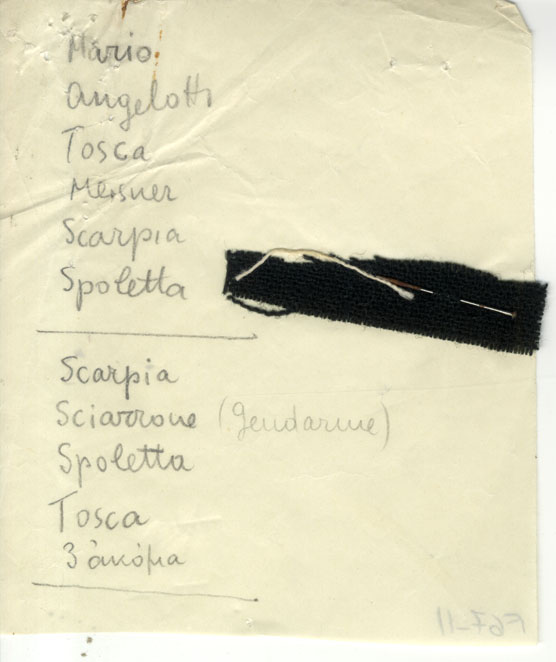 Mario
Angelotti
Tosca
Meisner
Scarpia
Spoletta
Scarpia
Sciarrone (Gendarme)
Spoletta
Tosca
3 ἀκόμα